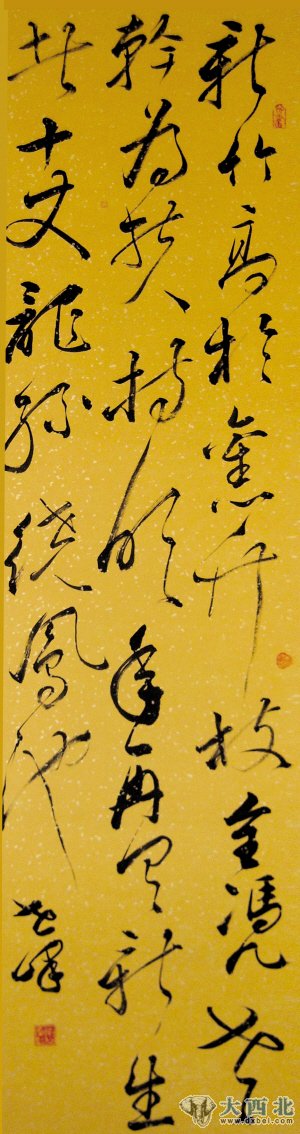 新竹高於舊竹枝全凴老
幹為扶持明年再有新生
者十丈龍孫繞鳳池
大西北
www.dxbei.com